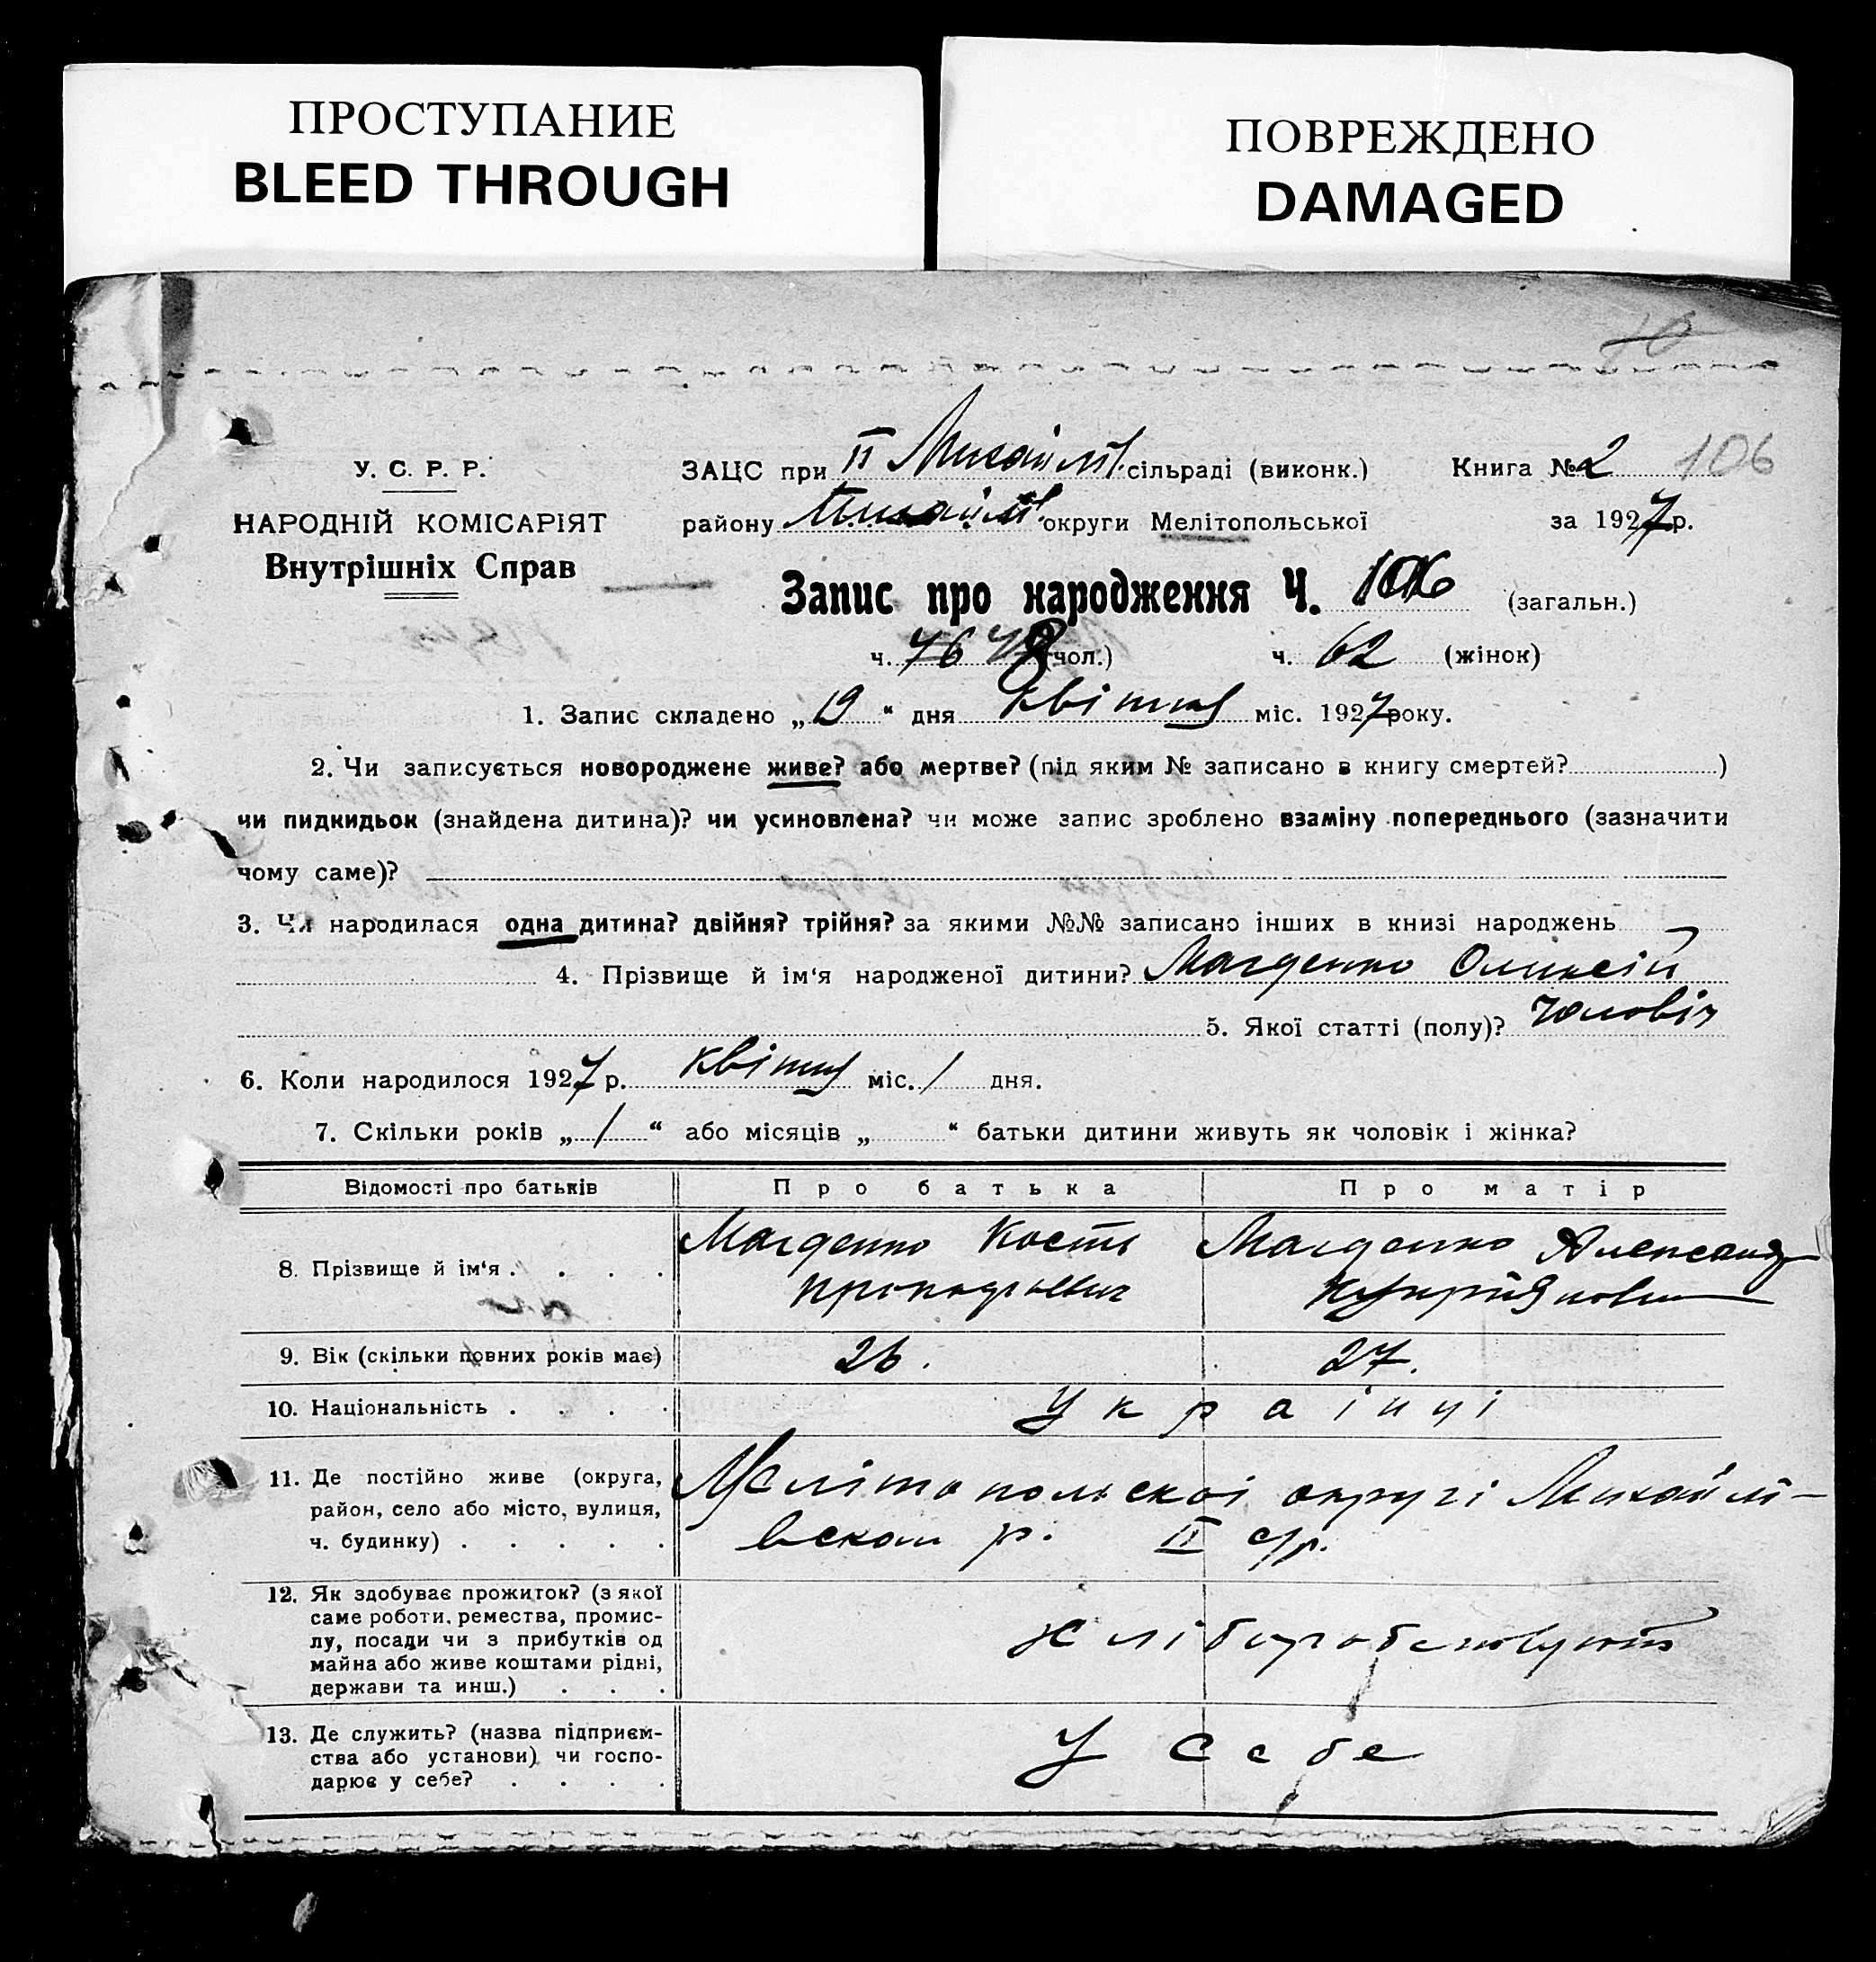 ПРОСТУПАНИЕ
BLEED THROUGH
ПОВРЕЖДЕНО
DAMAGED
106
У. С. Р. Р.
НАРОДНІЙ КОМІСАРІЯТ
Внутрішніх Справ
ЗАЦС при ІІ Михайлів. сільраді (виконк.) Книга № 2
району Михайлів. округи Мелітопольської за 1927 р.
Запис про народження Ч. 106 (загальн.)
ч. 76 78 (чол.) ч. 62 (жінок)
1. Запис складено „19“ дня квітня міс. 1927 року.
2. Чи записується новороджене живе? або мертве? (під яким № записано в книгу смертей? )
чи пидкидьок (знайдена дитина)? чи усиновлена? чи може запис зроблено взаміну попереднього (зазначити
чому саме)?
3. Чи народилася одна дитина? двійня? трійня? за якими №№ записано інших в книзі народжень
4. Прізвище й ім‘я народженої дитини? Магденко Олексій
5. Якої статті (полу)? чоловіч
6. Коли народилося 1927 р. квітня міс. 1 дня.
7. Скільки років „1“ або місяців „ “ батьки дитини живуть як чоловік і жінка?
Відомості про батьків Про батька Про матір
8. Прізвище й ім‘я . . . . Магденко Кость Магденко Александ
9. Вік (скільки повних років має) 26. 27.
10. Національність . . . . Українці
11. Де постійно живе (округа, район, село або місто, вулиця, ч. будинку) . . . . .
Мелітопольскоі округі Михайлі-
вском р. ІІ с/р.
12. Як здобуває прожиток? (з якої саме роботи, ремества, промис-
лу, посади чи з прибутків од
майна або живе коштами рідні,
держави та инш.) . . .
13. Де служить? (назва підприєм-
ства або установи) чи госпо-
дарює у себе? . . . .
У себе